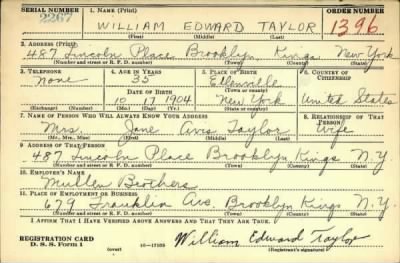 SERIAL NUMBER 1. NAME (Print) ORDER NUMBER
2267 WILLIAM EDWARD TAYLOR 1396
(First) (Middle) (Last)
2. ADDRESS (Print)
487 Lincoln Place Brooklyn Kings New York
(Number and street or R. F. D. number) (Town) (County) (State)
3. TELEPHONE 4. AGE IN YEARS 5. PLACE OF BIRTH 6. COUNTRY OF CITIZENSHIP
None 35 Ellenville
DATE OF BIRTH (Town or county)
10 17 1904 New York United States
(Exchange) (Number) (Mo.) (Day) (Yr.) (State or country)
7. NAME OF PERSON WHO WILL ALWAYS KNOW YOUR ADDRESS 8. RELATIONSHIP OF THAT PERSON
Mrs. Jane Avis Taylor Wife
(Mr., Mrs., Miss) (First) (Middle) (Last)
9. ADDRESS OF THAT PERSON
487 Lincoln Place Brooklyn Kings N.Y
(Number and street or R. F. D. number) (Town) (County) (State)
10. EMPLOYER'S NAME
Mullen Brothers
11. PLACE OF EMPLOYMENT OR BUSINESS
679 Franklin Ave. Brooklyn Kings N.Y.
(Number and street or R. F. D. number) (Town) (County) (State)
I AFFIRM THAT I HAVE VERIFIED ABOVE ANSWERS AND THAT THEY ARE TRUE.
REGISTRATION CARD
D. S. S. Form 1 (over) 16—17105 William Edward Taylor
(Registrant's signature)